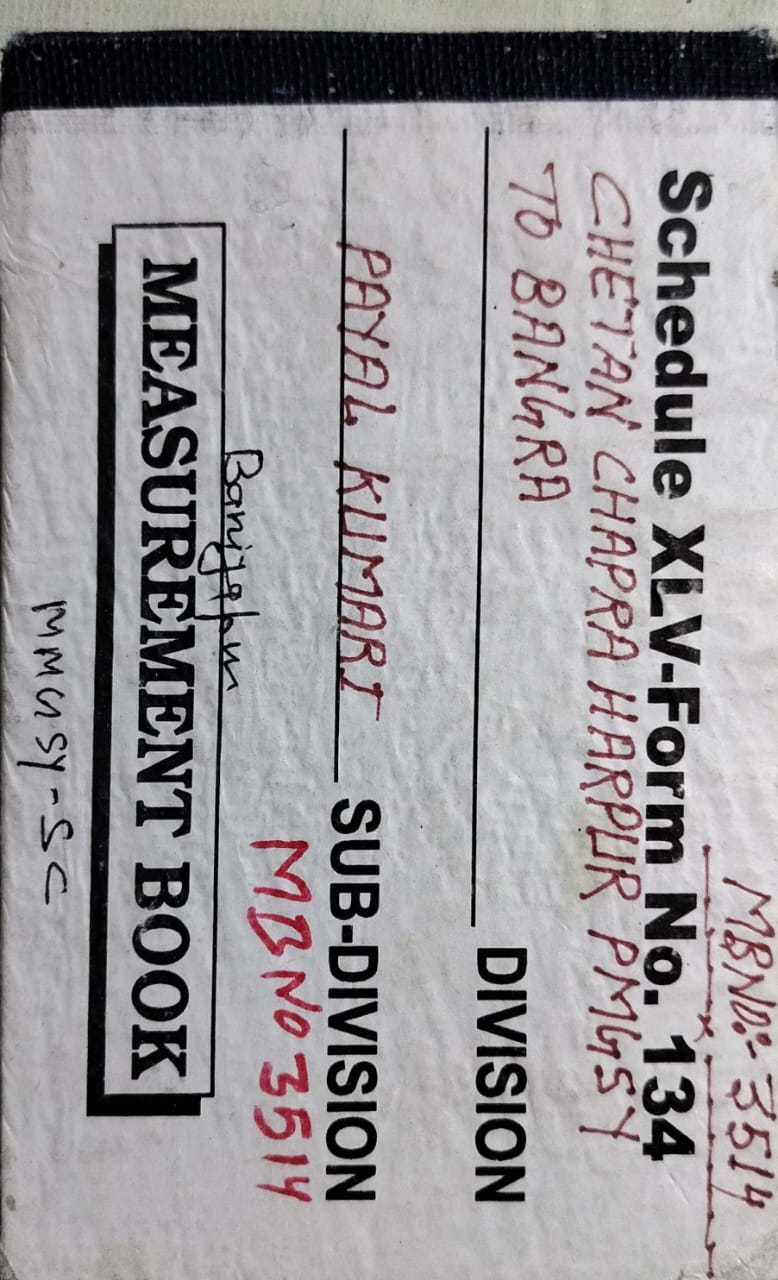 MBNO:- 3514
Schedule XLV-Form No. 134
CHETAN CHAPRA HARPUR PMGSY
TO BANGRA
DIVISION
PAYAL KUMARI SUB-DIVISION
MB NO 3514
MEASUREMENT BOOK
MMGSY-SC